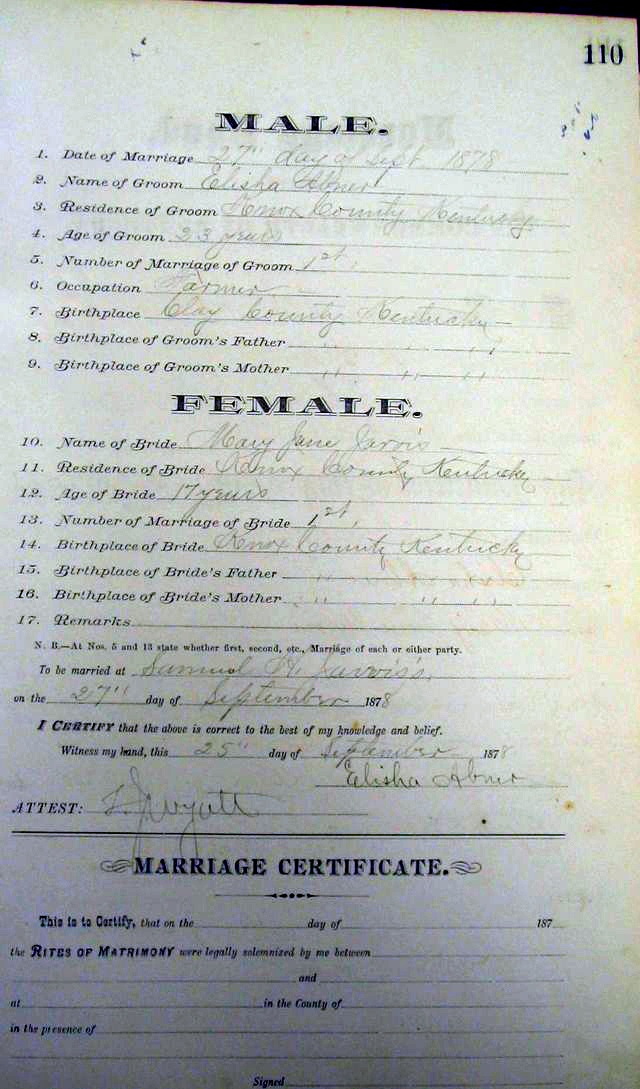 110
MALE.
1. Date of Marriage 27" day of Sept. 1878
2. Name of Groom Elisha Abner
3. Residence of Groom Knox County Kentucky
4. Age of Groom 23 years
5. Number of Marriage of Groom 1st.
6. Occupation Farmer
7. Birthplace Clay County Kentucky
8. Birthplace of Groom's Father " " "
9. Birthplace of Groom's Mother " " "
FEMALE.
10. Name of Bride Mary Jane Jarvis
11. Residence of Bride Knox County Kentucky
12. Age of Bride 17 years
13. Number of Marriage of Bride 1st.
14. Birthplace of Bride Knox County Kentucky
15. Birthplace of Bride's Father " " "
16. Birthplace of Bride's Mother " " "
17. Remarks
N. B.—At Nos. 5 and 13 state whether first, second, etc., Marriage of each or either party.
To be married at Samuel H. Jarvis's
on the 27" day of September 1878
I CERTIFY that the above is correct to the best of my knowledge and belief.
Witness my hand, this 25" day of September 1878
Elisha Abner
ATTEST: Wyatt
MARRIAGE CERTIFICATE.
This is to Certify, that on the day of 187
the RITES OF MATRIMONY were legally solemnized by me between
and
at in the County of
in the presence of
Signed